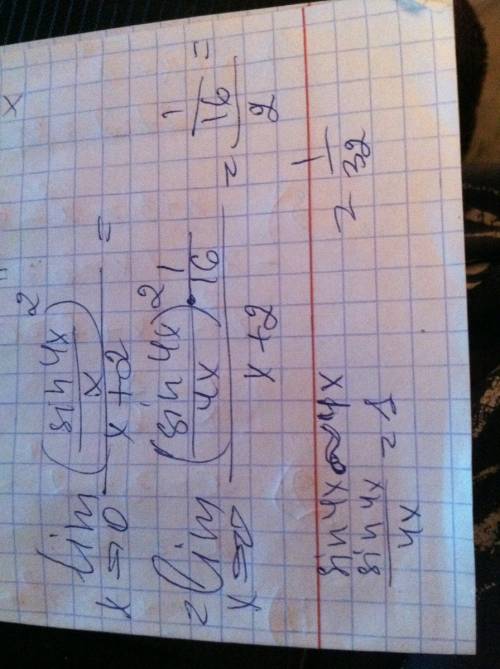 x
lim x→0 (sin 4x / x)² / (x+2) =
= lim x→0 (sin 4x / 4x)² · 1/16 / (x+2) = (1/16) / 2 =
= 1/32
sin 4x ~ 4x
sin 4x / 4x = 1